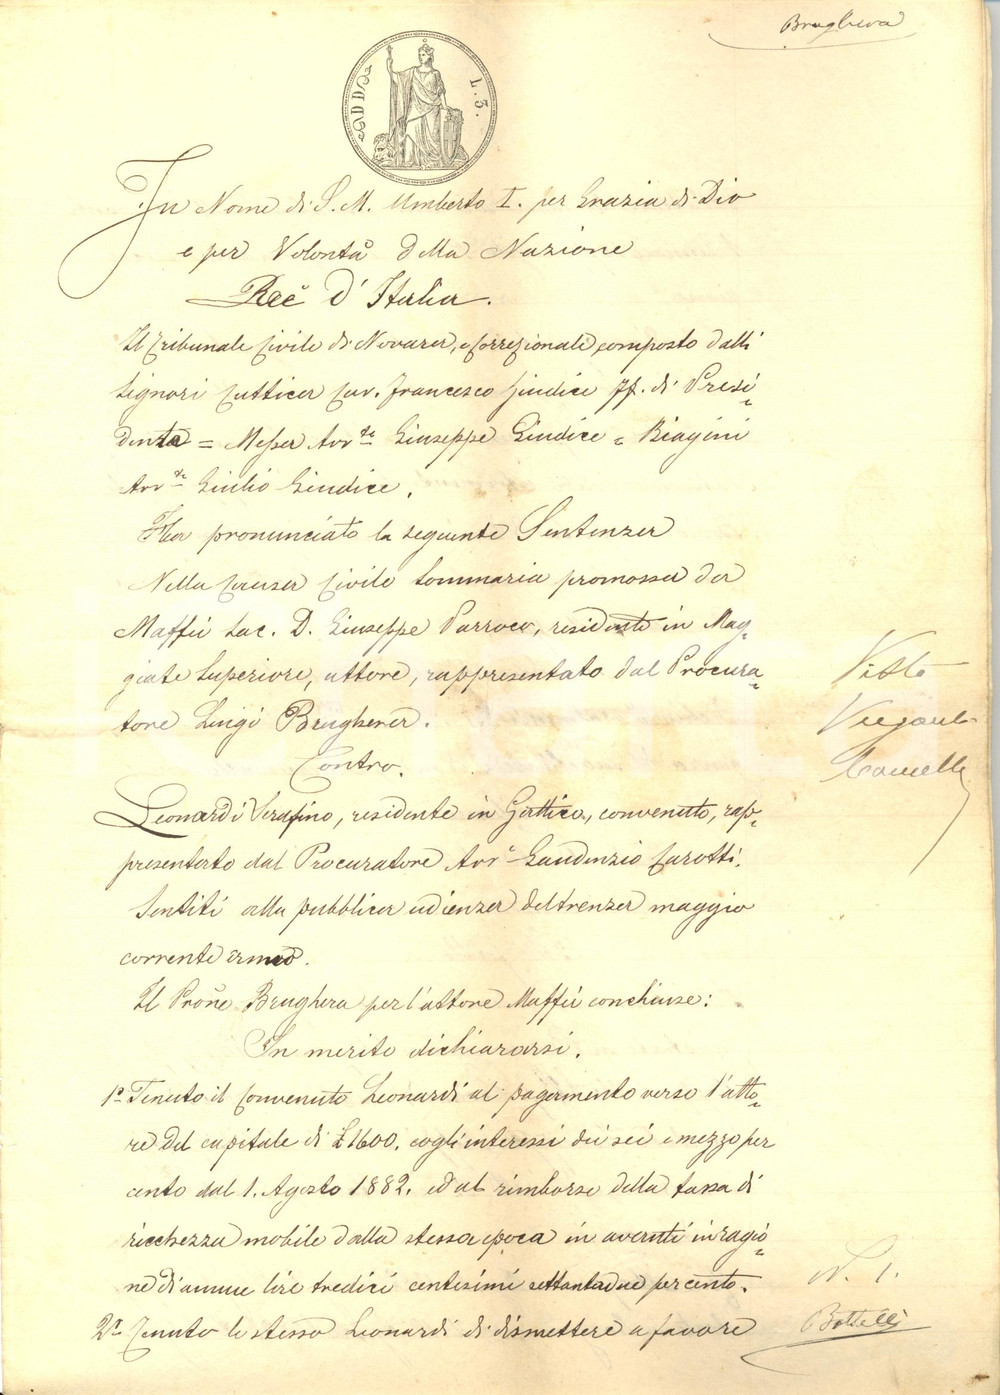 Brughera
L. 3.
In Nome di S. M. Umberto I. per Grazia di Dio
e per Volontà della Nazione
Ree d'Italia.
Il Tribunale Civile di Novara, e Correzionale composto dalli
Signori Cuttica Cav. Francesco Giudice ff. di Presi=
dente = Messea Avv.to Giuseppe Giudice = Biagini
Avv.to Giulio Giudice.
Ha pronunciato la seguente Sentenza
Nella Causa Civile Sommaria promossa da
Maffii Sac. D. Giuseppe Parroco, residente in Mag=
giate Superiore, attore, rappresentato dal Procura=
tore Luigi Brughera.
Contro.
Leonardi Serafino, residente in Gattico, convenuto, rap=
presentato dal Procuratore Avv.o Gaudenzio Carotti.
Sentiti alla pubblica udienza del trenta maggio
corrente anno.
Il Proñe Brughera per l'attore Maffii conchiuse:
In merito dichiararsi.
1.o Tenuto il Convenuto Leonardi al pagamento verso l'atto=
re del capitale di £1600. cogli interessi del sei e mezzo per
cento dal 1. Agosto 1882. ed al rimborso della tassa di
ricchezza mobile dalla stessa epoca in avanti in ragio=
ne di annue lire tredici centesimi settantadue per cento.
2.o Tenuto lo stesso Leonardi di dismettere a favore
Visto
N. 1.
Bottelli